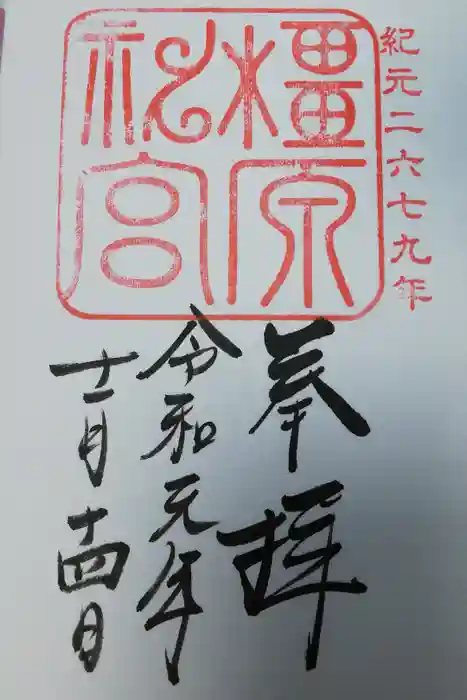 紀元二六七九年
橿原
神宮
奉拝
令和元年
十一月十四日